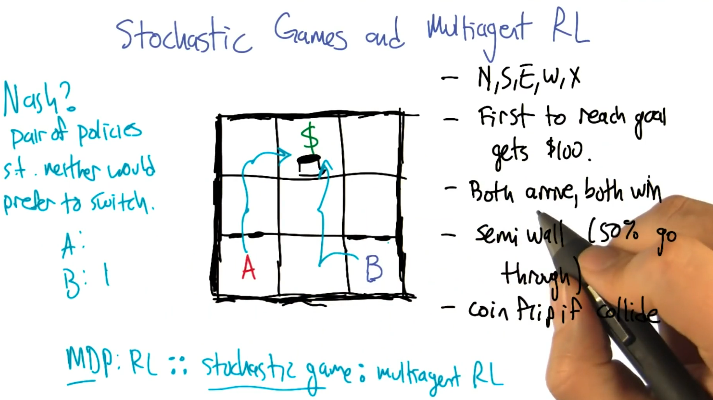 Stochastic Games and Multiagent RL
Nash?
pair of policies
s.t. neither would
prefer to switch.
A:
B: 1
$
A
B
- N,S,E,W,X
- First to reach goal
gets $100.
- Both arrive, both win
- semi wall (50% go
through)
- coin flip if collide
MDP: RL :: stochastic game: multiagent RL